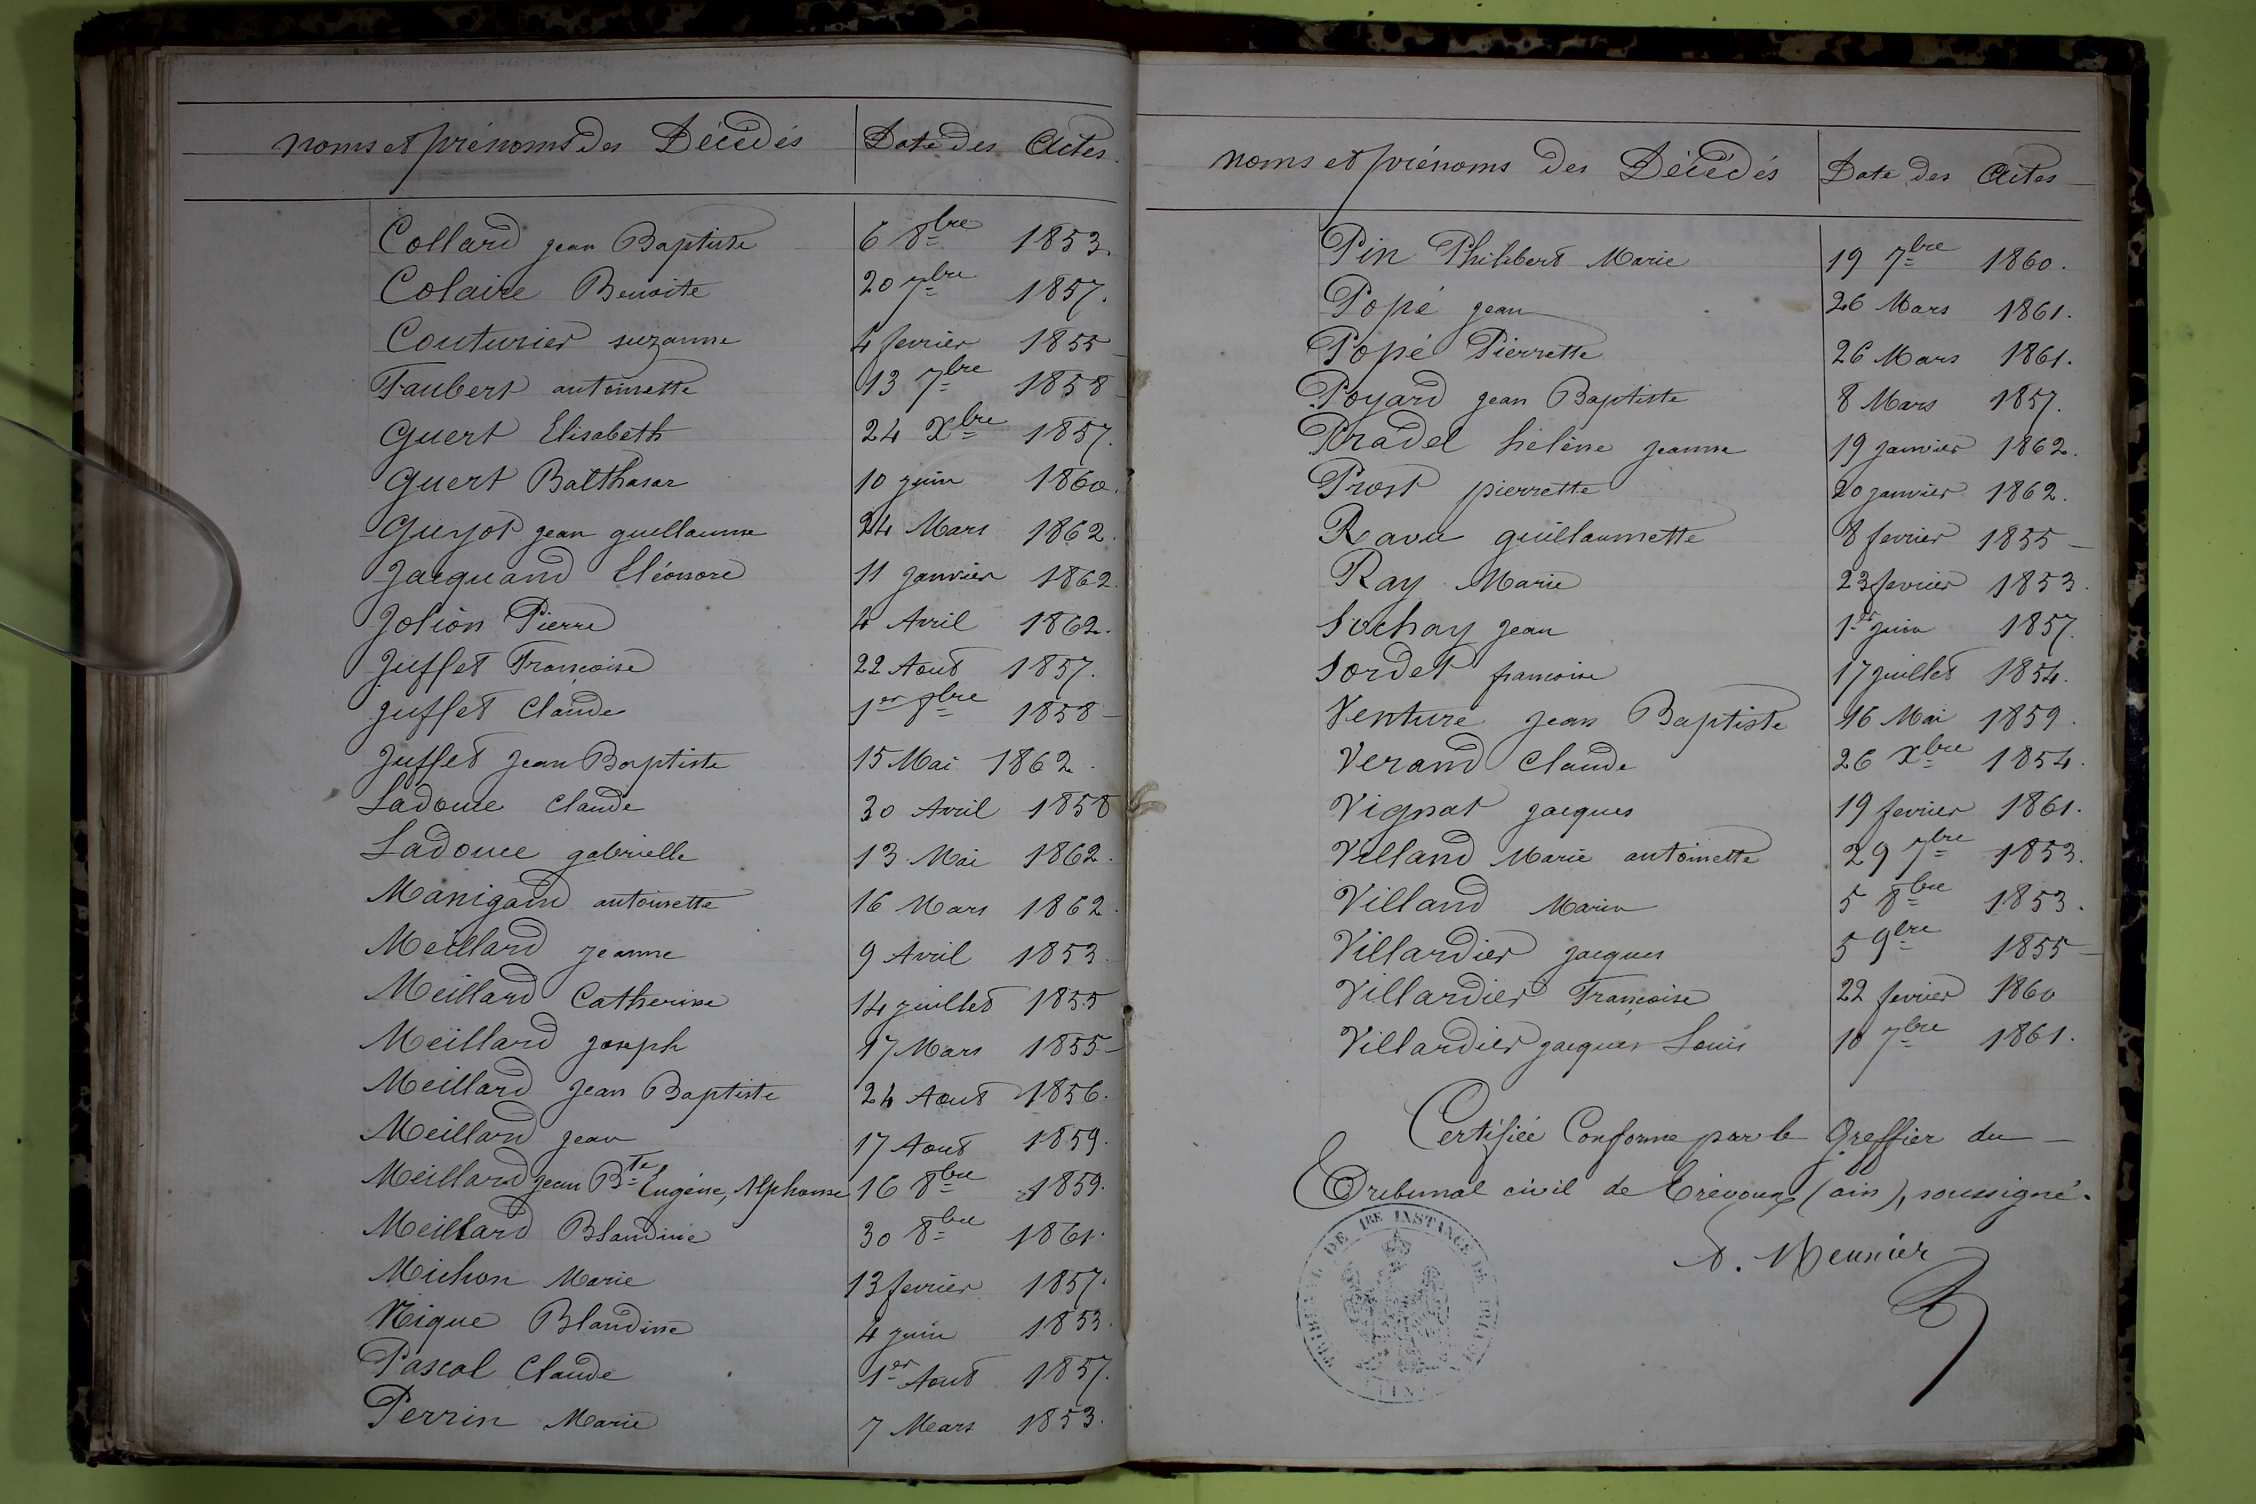 Noms et prénoms des Décédés Date des Actes
Collard Jean Baptiste 6 8bre 1853.
Colaire Benoite 20 7bre 1857.
Couturier Suzanne 4 fevrier 1855
Faubert antoinette 13 7bre 1858
Guert Elisabeth 24 Xbre 1857.
Guert Balthasar 10 juin 1860.
Guyot jean guillaume 24 Mars 1862.
Jacquand Eléonore 11 janvier 1862.
Jolion Pierre 4 Avril 1862.
Juffet Françoise 22 Aout 1857.
Juffet Claude 1er 8bre 1858
Juffet Jean Baptiste 15 Mai 1862.
Ladouce Claude 30 Avril 1858
Ladouce gabrielle 13 Mai 1862.
Manigand antoinette 16 Mars 1862.
Meillard jeanne 9 Avril 1853.
Meillard Catherine 14 juillet 1855
Meillard joseph 17 Mars 1855
Meillard Jean Baptiste 24 Aout 1856.
Meillard jean 17 Aout 1859.
Meillard jean Bte Eugène, Alphonse 16 8bre 1859.
Meillard Blandine 30 8bre 1861.
Michon Marie 13 fevrier 1857.
Nique Blandine 4 juin 1853.
Pascal Claude 1er Aout 1857.
Perrin Marie 7 Mars 1853.
Noms et prénoms des Décédés Date des Actes
Pin Philibert Marie 19 7bre 1860.
Popé jean 26 Mars 1861.
Popé Pierrette 26 Mars 1861.
Poyard jean Baptiste 8 Mars 1857.
Pradel hélène jeanne 19 janvier 1862.
Prost pierrette 20 janvier 1862.
Ravu guillaumette 8 fevrier 1855
Ray Marie 23 fevrier 1853.
Sochay jean 1er juin 1857.
Sordet francoise 17 juillet 1854.
Venture Jean Baptiste 16 Mai 1859.
Verand Claude 26 Xbre 1854.
Vignat jacques 19 fevrier 1861.
Villand Marie antoinette 29 7bre 1853.
Villand Marie 5 8bre 1853.
Villardier jacques 5 9bre 1855
Villardier Françoise 22 fevrier 1860
Villardier jacques Louis 10 7bre 1861.
Certifiée Conforme par le Greffier du
Tribunal civil de Trévoux (ain), soussigné.
Meunier
TRIBUNAL DE 1RE INSTANCE DE